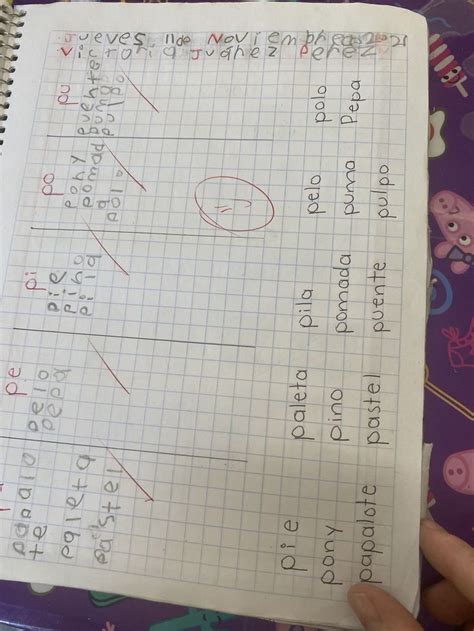 Jueves 11 de Noviembre 2021
Victoria Juárez Perez
pe pi po pu
papalo pelo pie pony puente
te pepa pino pomada puma
paleta pila polo pulpo
pastel
pie paleta pila pelo polo
pony pino pomada puma Pepa
papalote pastel puente pulpo